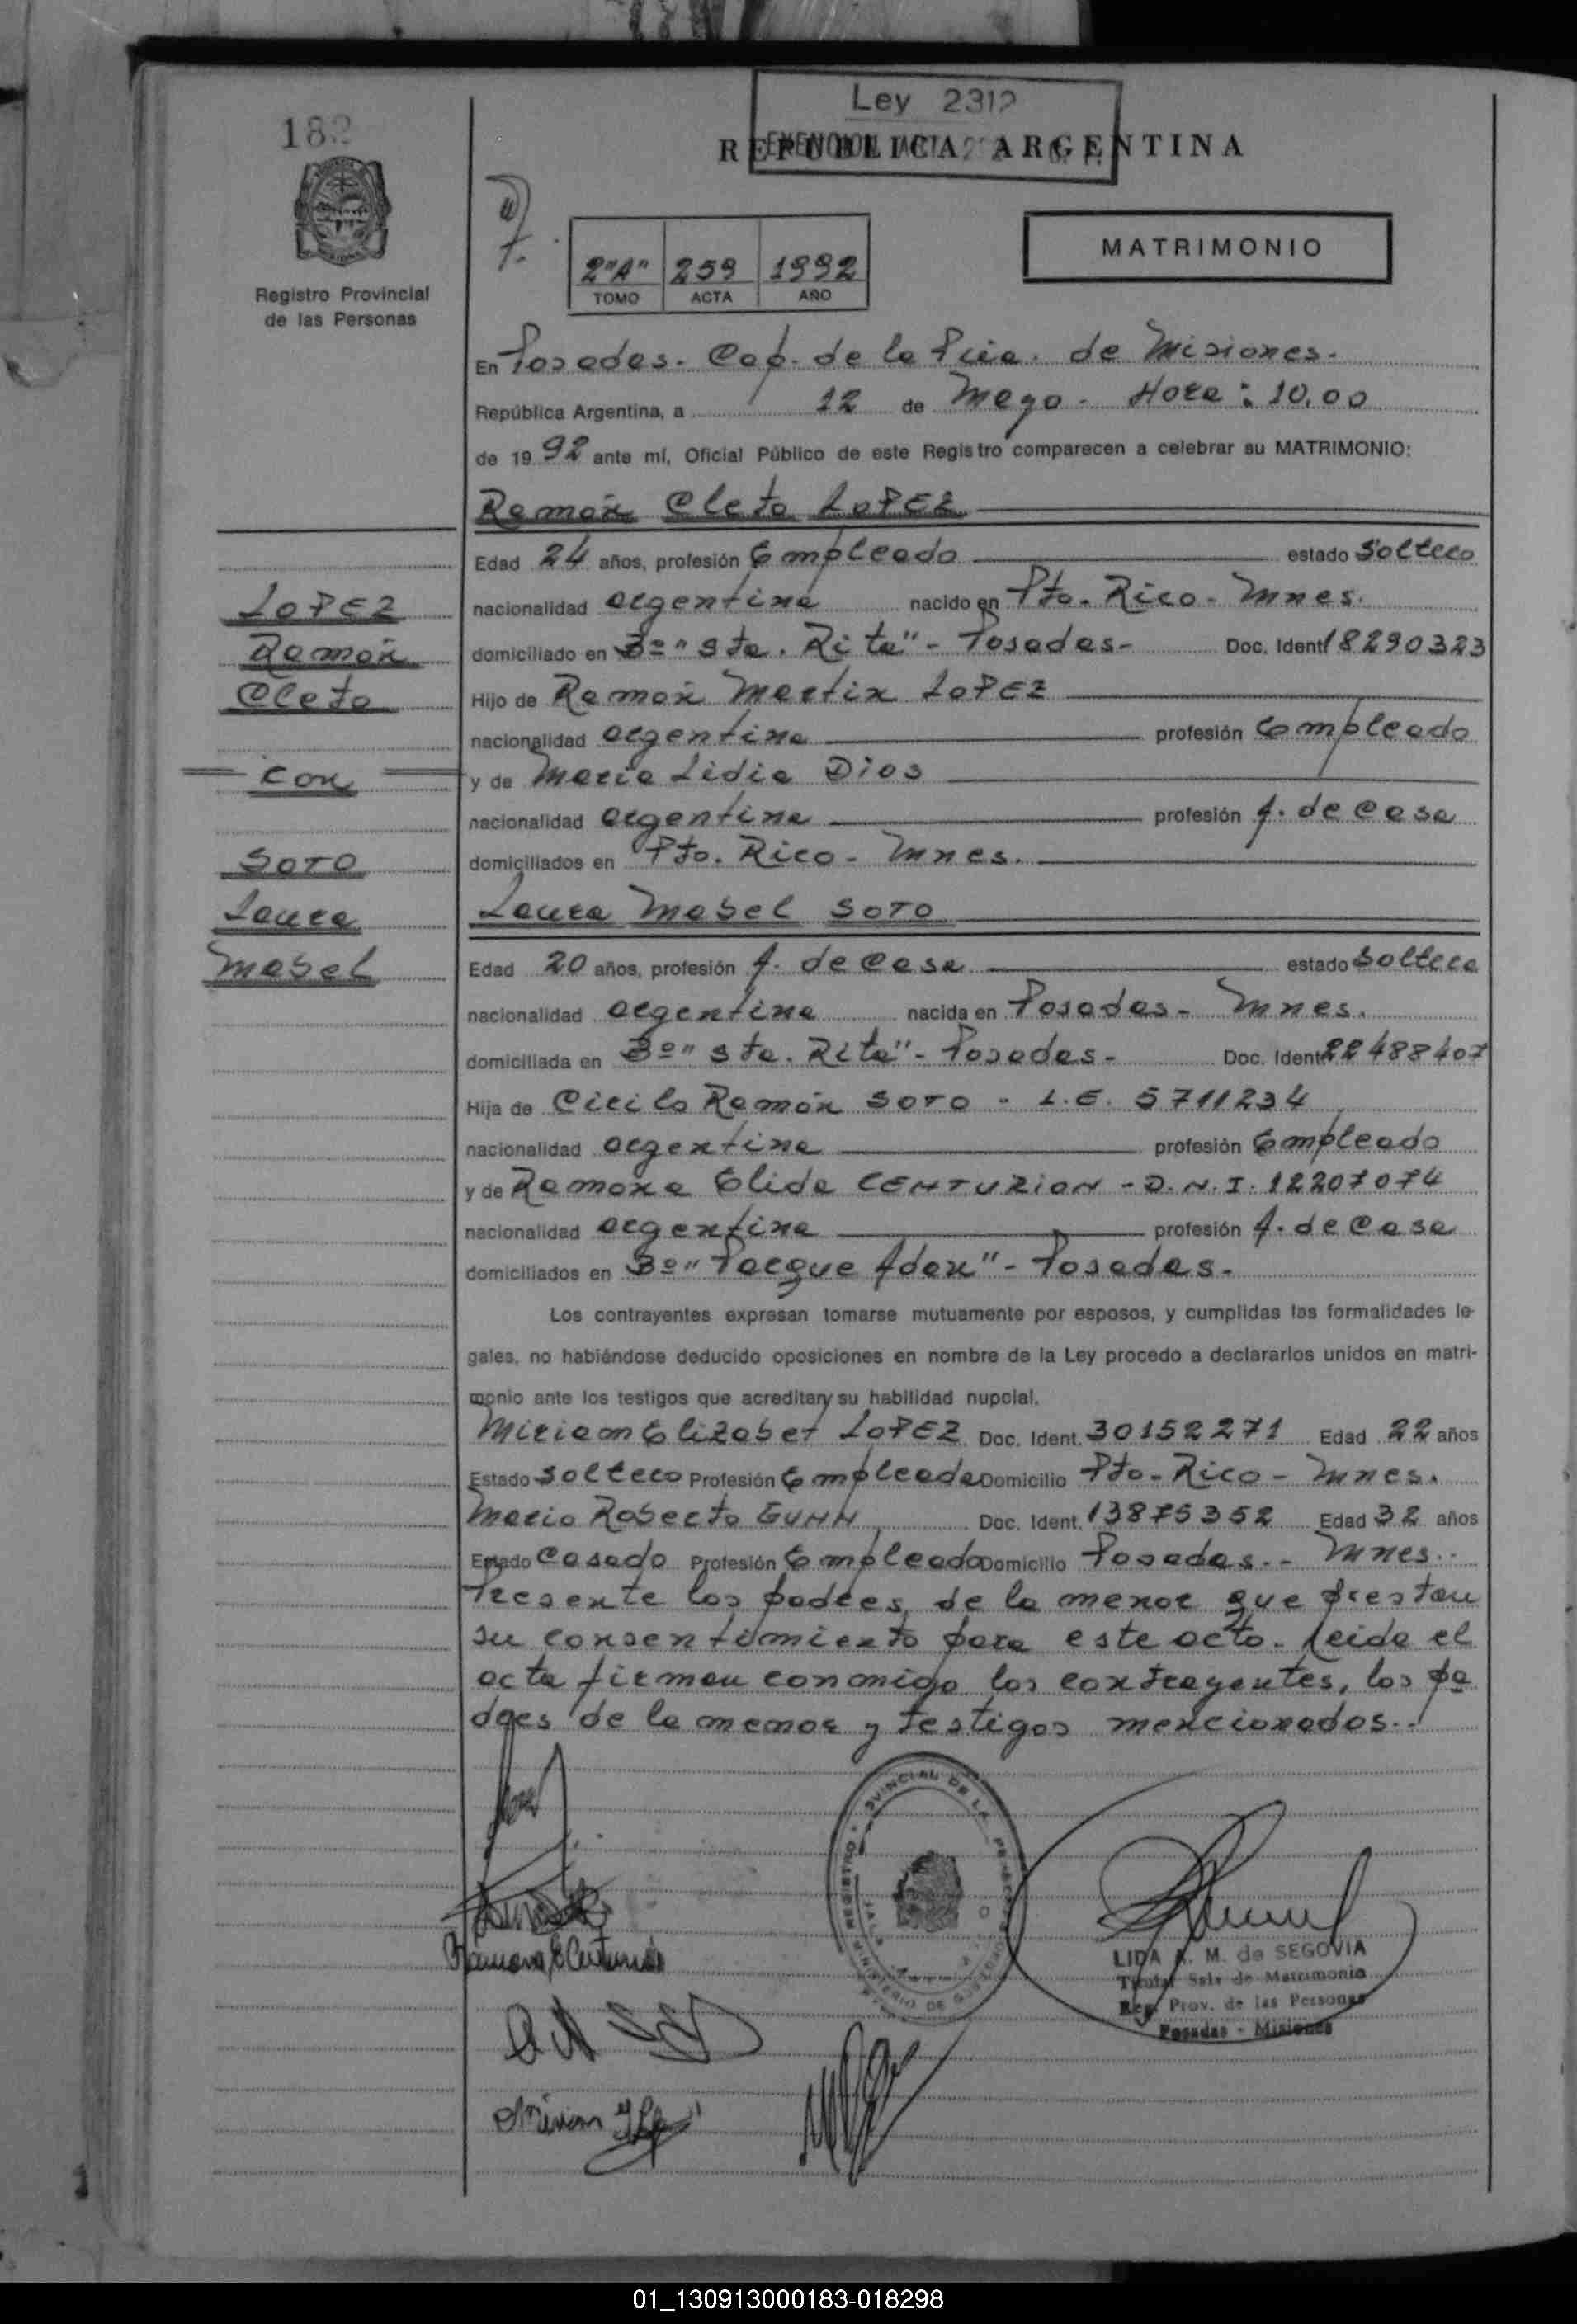 Ley 2312
REPUBLICA ARGENTINA
Registro Provincial
de las Personas
2"A" 259 1992
TOMO ACTA AÑO
MATRIMONIO
En Posadas. Cap. de la Pcia. de Misiones.
República Argentina, a 12 de Mayo - Hora: 10,00
de 1992 ante mí, Oficial Público de este Registro comparecen a celebrar su MATRIMONIO:
Ramón Cleto LOPEZ
Edad 24 años, profesión Empleado estado Soltero
nacionalidad argentina nacido en Pto. Rico - Mnes.
domiciliado en Bº "Sta. Rita" - Posadas - Doc. Ident. 18290323
Hijo de Ramón Martin LOPEZ
nacionalidad argentina profesión Empleado
y de Maria Lidia Dios
nacionalidad argentina profesión A. de Casa
domiciliados en Pto. Rico - Mnes.
LOPEZ
Ramón
Cleto
con
SOTO
Laura
Mabel
Laura Mabel SOTO
Edad 20 años, profesión A. de Casa estado Soltera
nacionalidad argentina nacida en Posadas - Mnes.
domiciliada en Bº "Sta. Rita" - Posadas - Doc. Ident. 22488407
Hija de Cirilo Ramón SOTO - L.E. 5711234
nacionalidad argentina profesión Empleado
y de Ramona Elida CENTURION - D.N.I. 12207074
nacionalidad argentina profesión A. de Casa
domiciliados en Bº "Parque Adam" - Posadas -
Los contrayentes expresan tomarse mutuamente por esposos, y cumplidas las formalidades le-
gales, no habiéndose deducido oposiciones en nombre de la Ley procedo a declararlos unidos en matri-
monio ante los testigos que acreditan su habilidad nupcial.
Miriam Elizabet LOPEZ Doc. Ident. 30152271 Edad 22 años
Estado Soltero Profesión Empleada Domicilio Pto. Rico - Mnes.
Mario Roberto GUNN Doc. Ident. 13875352 Edad 32 años
Estado Casado Profesión Empleado Domicilio Posadas - Mnes.
Presente los padres de la menor que prestan
su consentimiento para este acto. Leida el
acta firman conmigo los contrayentes, los pa
dres de la menor y testigos mencionados.
LIDA A. M. de SEGOVIA
Titular Sala de Matrimonio
Reg. Prov. de las Personas
Posadas - Misiones
01_130913000183-018298